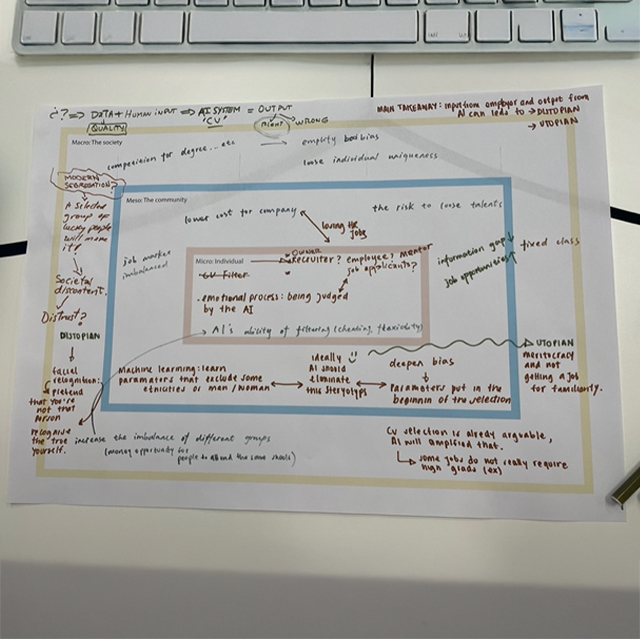 ¿?⇒ DATA + HUMAN INPUT ⇒ AI SYSTEM = OUTPUT
QUALITY
"CV"
RIGHT
WRONG
MAIN TAKEAWAY: input from employer and output from
AI can lead to → DISTOPIAN
→ UTOPIAN
Macro: The society
competition for degree... etc
→ emplify bias
loose individual uniqueness
MODERN
SEGREGATION?
A selected
group of
lucky people
will make
it?
Societal
discontent.
Distrust?
DISTOPIAN
facial
recognition:
pretend
that you're
not that
person
recognise
the true
yourself.
Meso: The community
lower cost for company
the risk to loose talents
losing the
jobs
job market
imbalanced
information gap
job opportunities
fixed class
Micro: Individual
OWNER
Recruiter? employee? mentor
job applicants?
CV Filter
. emotional process: being judged
by the AI
AI's ability of filtering (cheating, flexibility)
UTOPIAN
meritocracy
and not
getting a job
for familiarity.
Machine learning: learn
paramators that exclude some
ethnicities or men/woman
ideally
AI should
eliminate
this sterytolyps
deepen bias
Parameters put in the
beginnin of the selection
increase the imbalance of different groups
(money opportunity for
people to attend the same schools)
CV selection is already arguable,
AI will amplified that.
some jobs do not really require
high grads (ex)